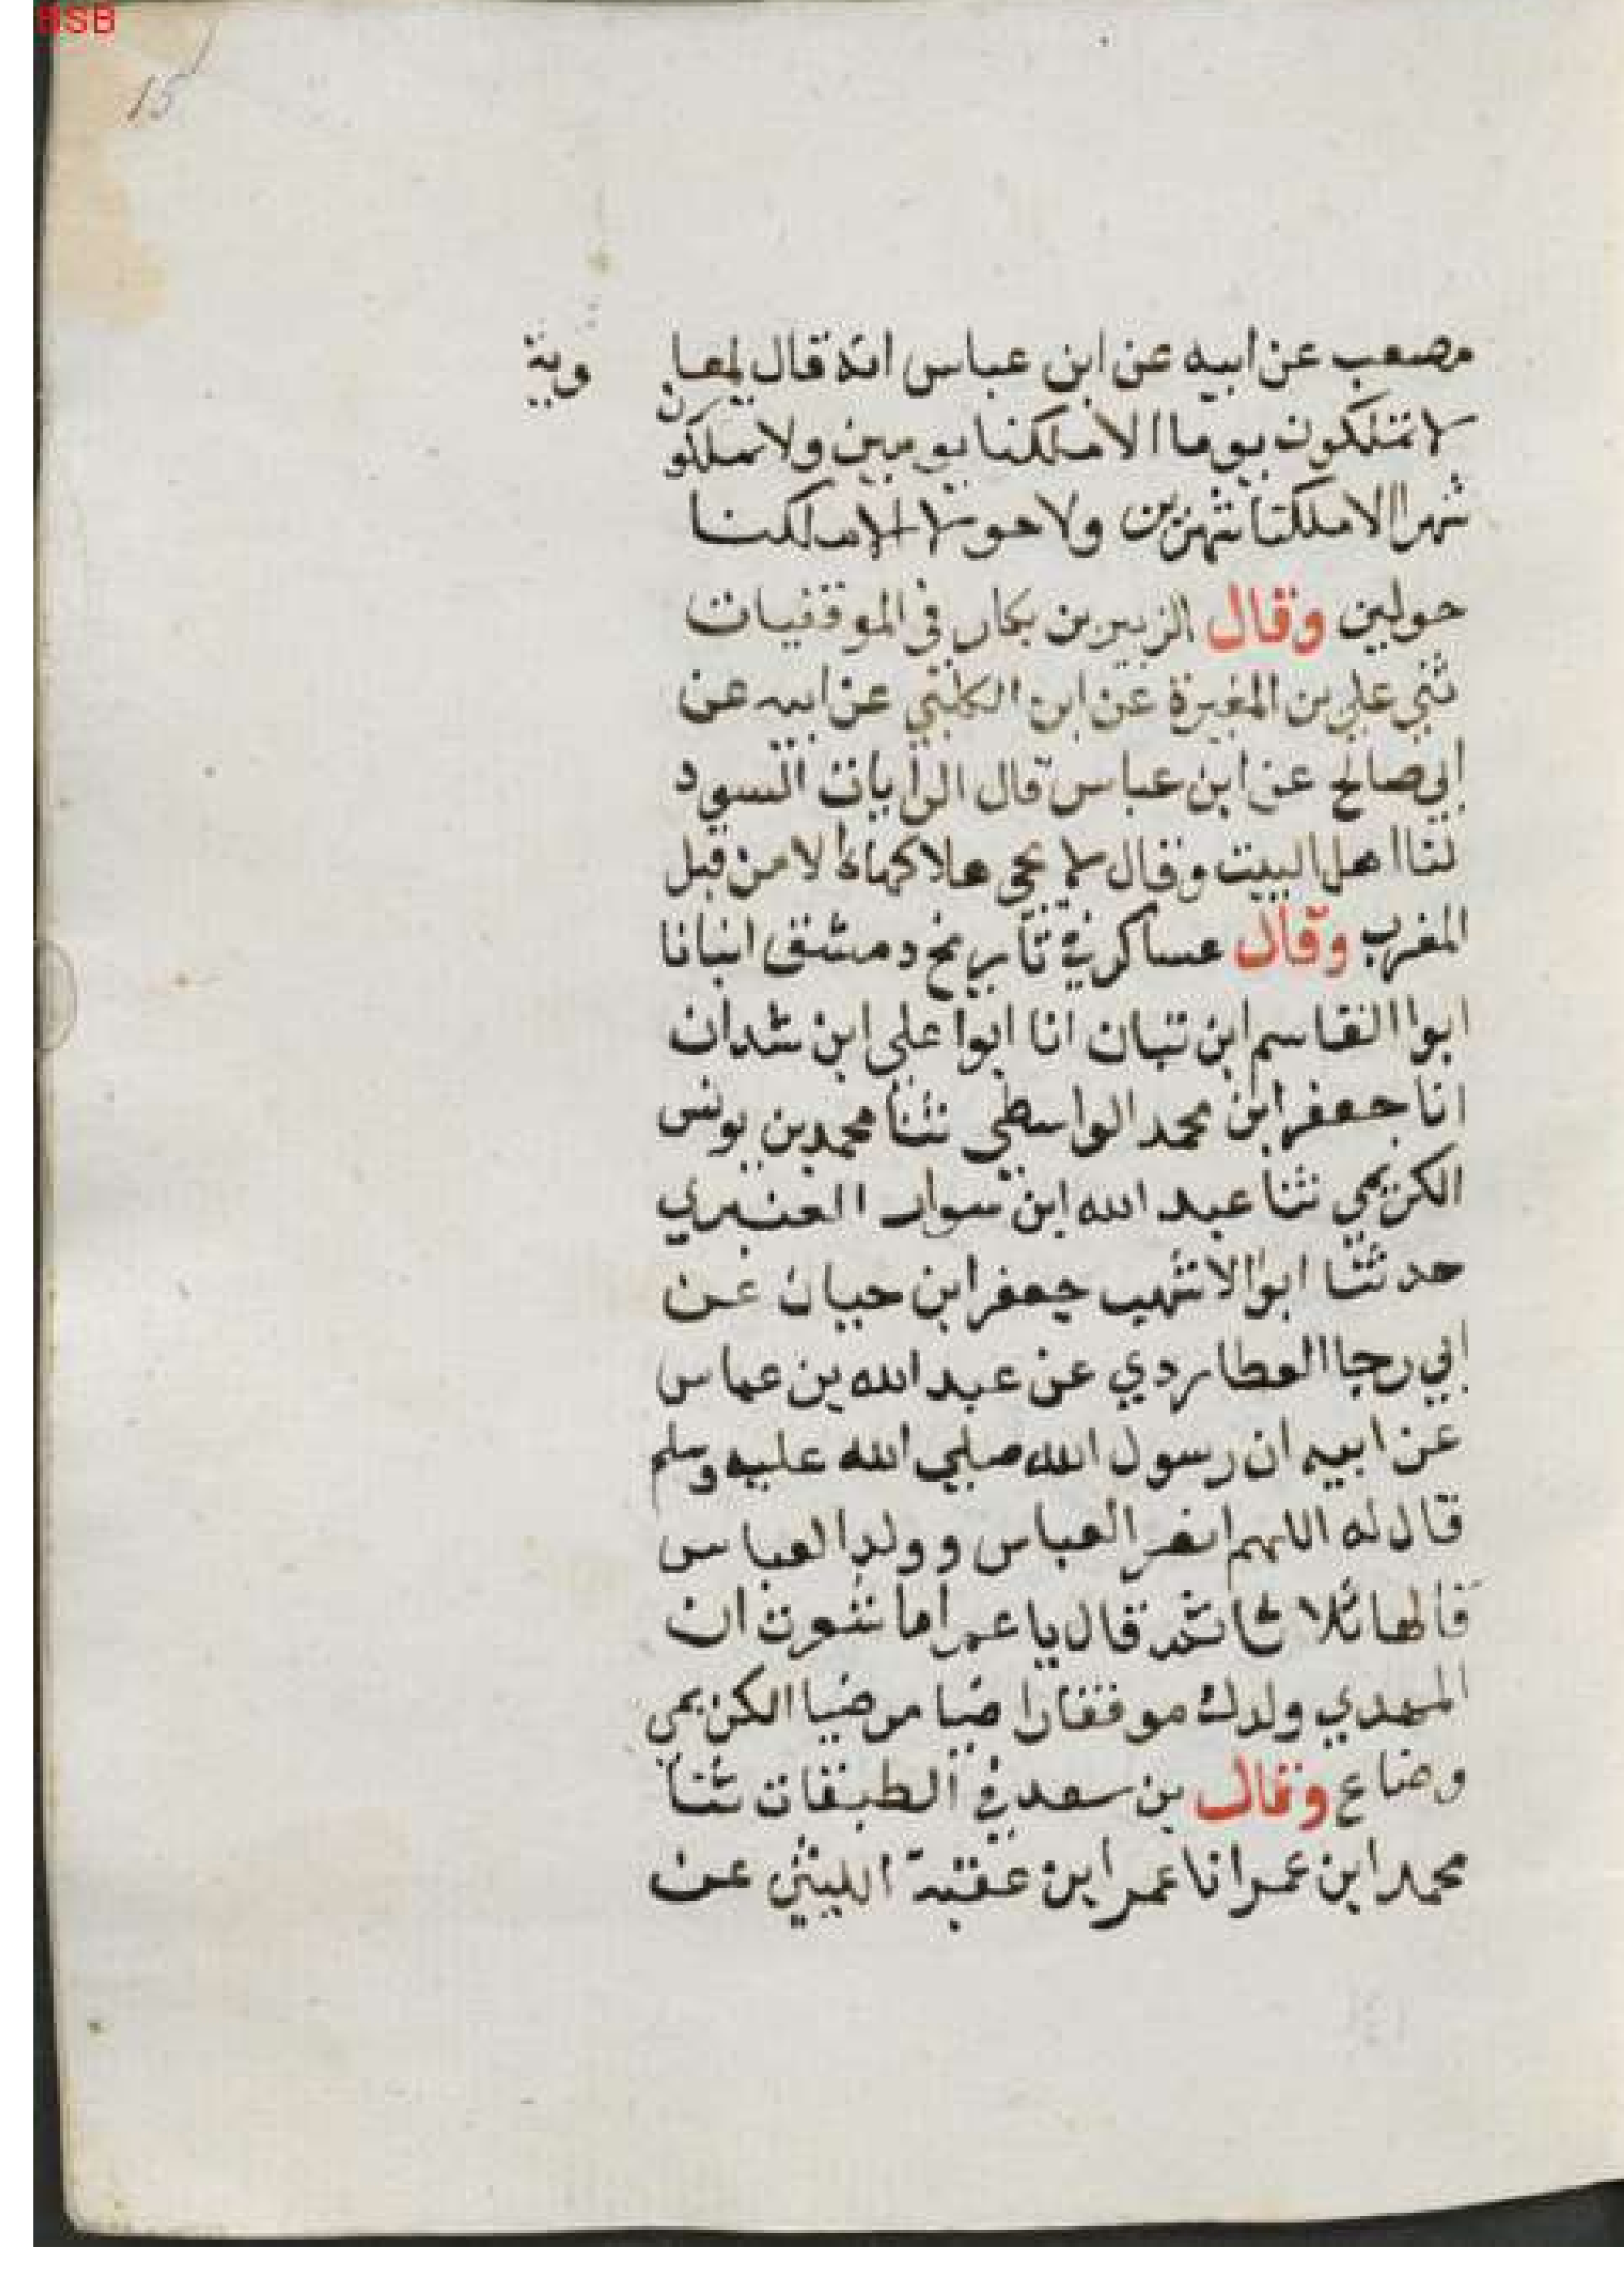 BSB
15
مصعب عن ابيه عن ابن عباس انه قال لمعا وية
لا تملكون يوما الا ملكنا يومين ولا تملكون
شهرا الا ملكنا شهرين ولا حولا الا ملكنا
حولين وقال الزبير بن بكار في الموفقيات
ثني علي بن المغيرة عن ابن الكلبي عن ابيه عن
ابي صالح عن ابن عباس قال الرايات السود
لنا اهل البيت وقال لا يجي هلاكها الا من قبل
المغرب وقال عساكر في تاريخ دمشق انبانا
ابوا القاسم ابن تبان انا ابوا علي ابن شدان
انا جعفر ابن محمد الواسطي ثنا محمد بن يونس
الكزيمي ثنا عبد الله ابن سوار العنبري
حدثنا ابوا الاشهب جعفر ابن حيان عن
ابي رجا العطاردي عن عبد الله بن عباس
عن ابيه ان رسول الله صلي الله عليه وسلم
قال له اللهم انصر العباس وولد العباس
قالها ثلاثا قال يا عم اما شعرت ان
المهدي ولدك موفقا راضيا مرضيا الكزيمي
وضاع وقال بن سعد في الطبقات ثنا
محمد ابن عمر انا عمر ابن عقبة الليثي عن